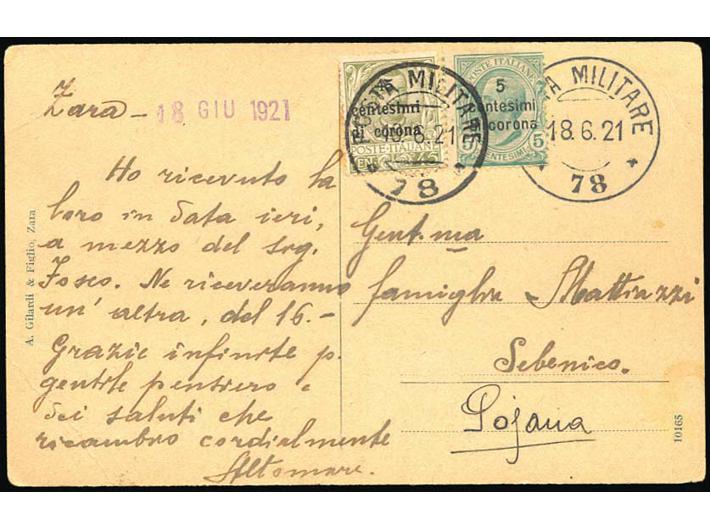 Zara - 18 GIU 1921
Ho ricevuto la
loro in data ieri,
a mezzo del sig.
Fosco. Ne riceveranno
un' altra, del 16.-
Grazie infinite p.
gentile pensiero e
dei saluti che
ricambio cordialmente
Altomare.
A. Gilardi & Figlio, Zara
centesimi
di corona
POSTE ITALIANE
POSTA MILITARE
18.6.21
78
POSTE ITALIANE
5
centesimi
di corona
5 5
CENTESIMI
POSTA MILITARE
18.6.21
78
Gent.ma
famiglia Mattiazzi
Sebenico.
Pojana
10165